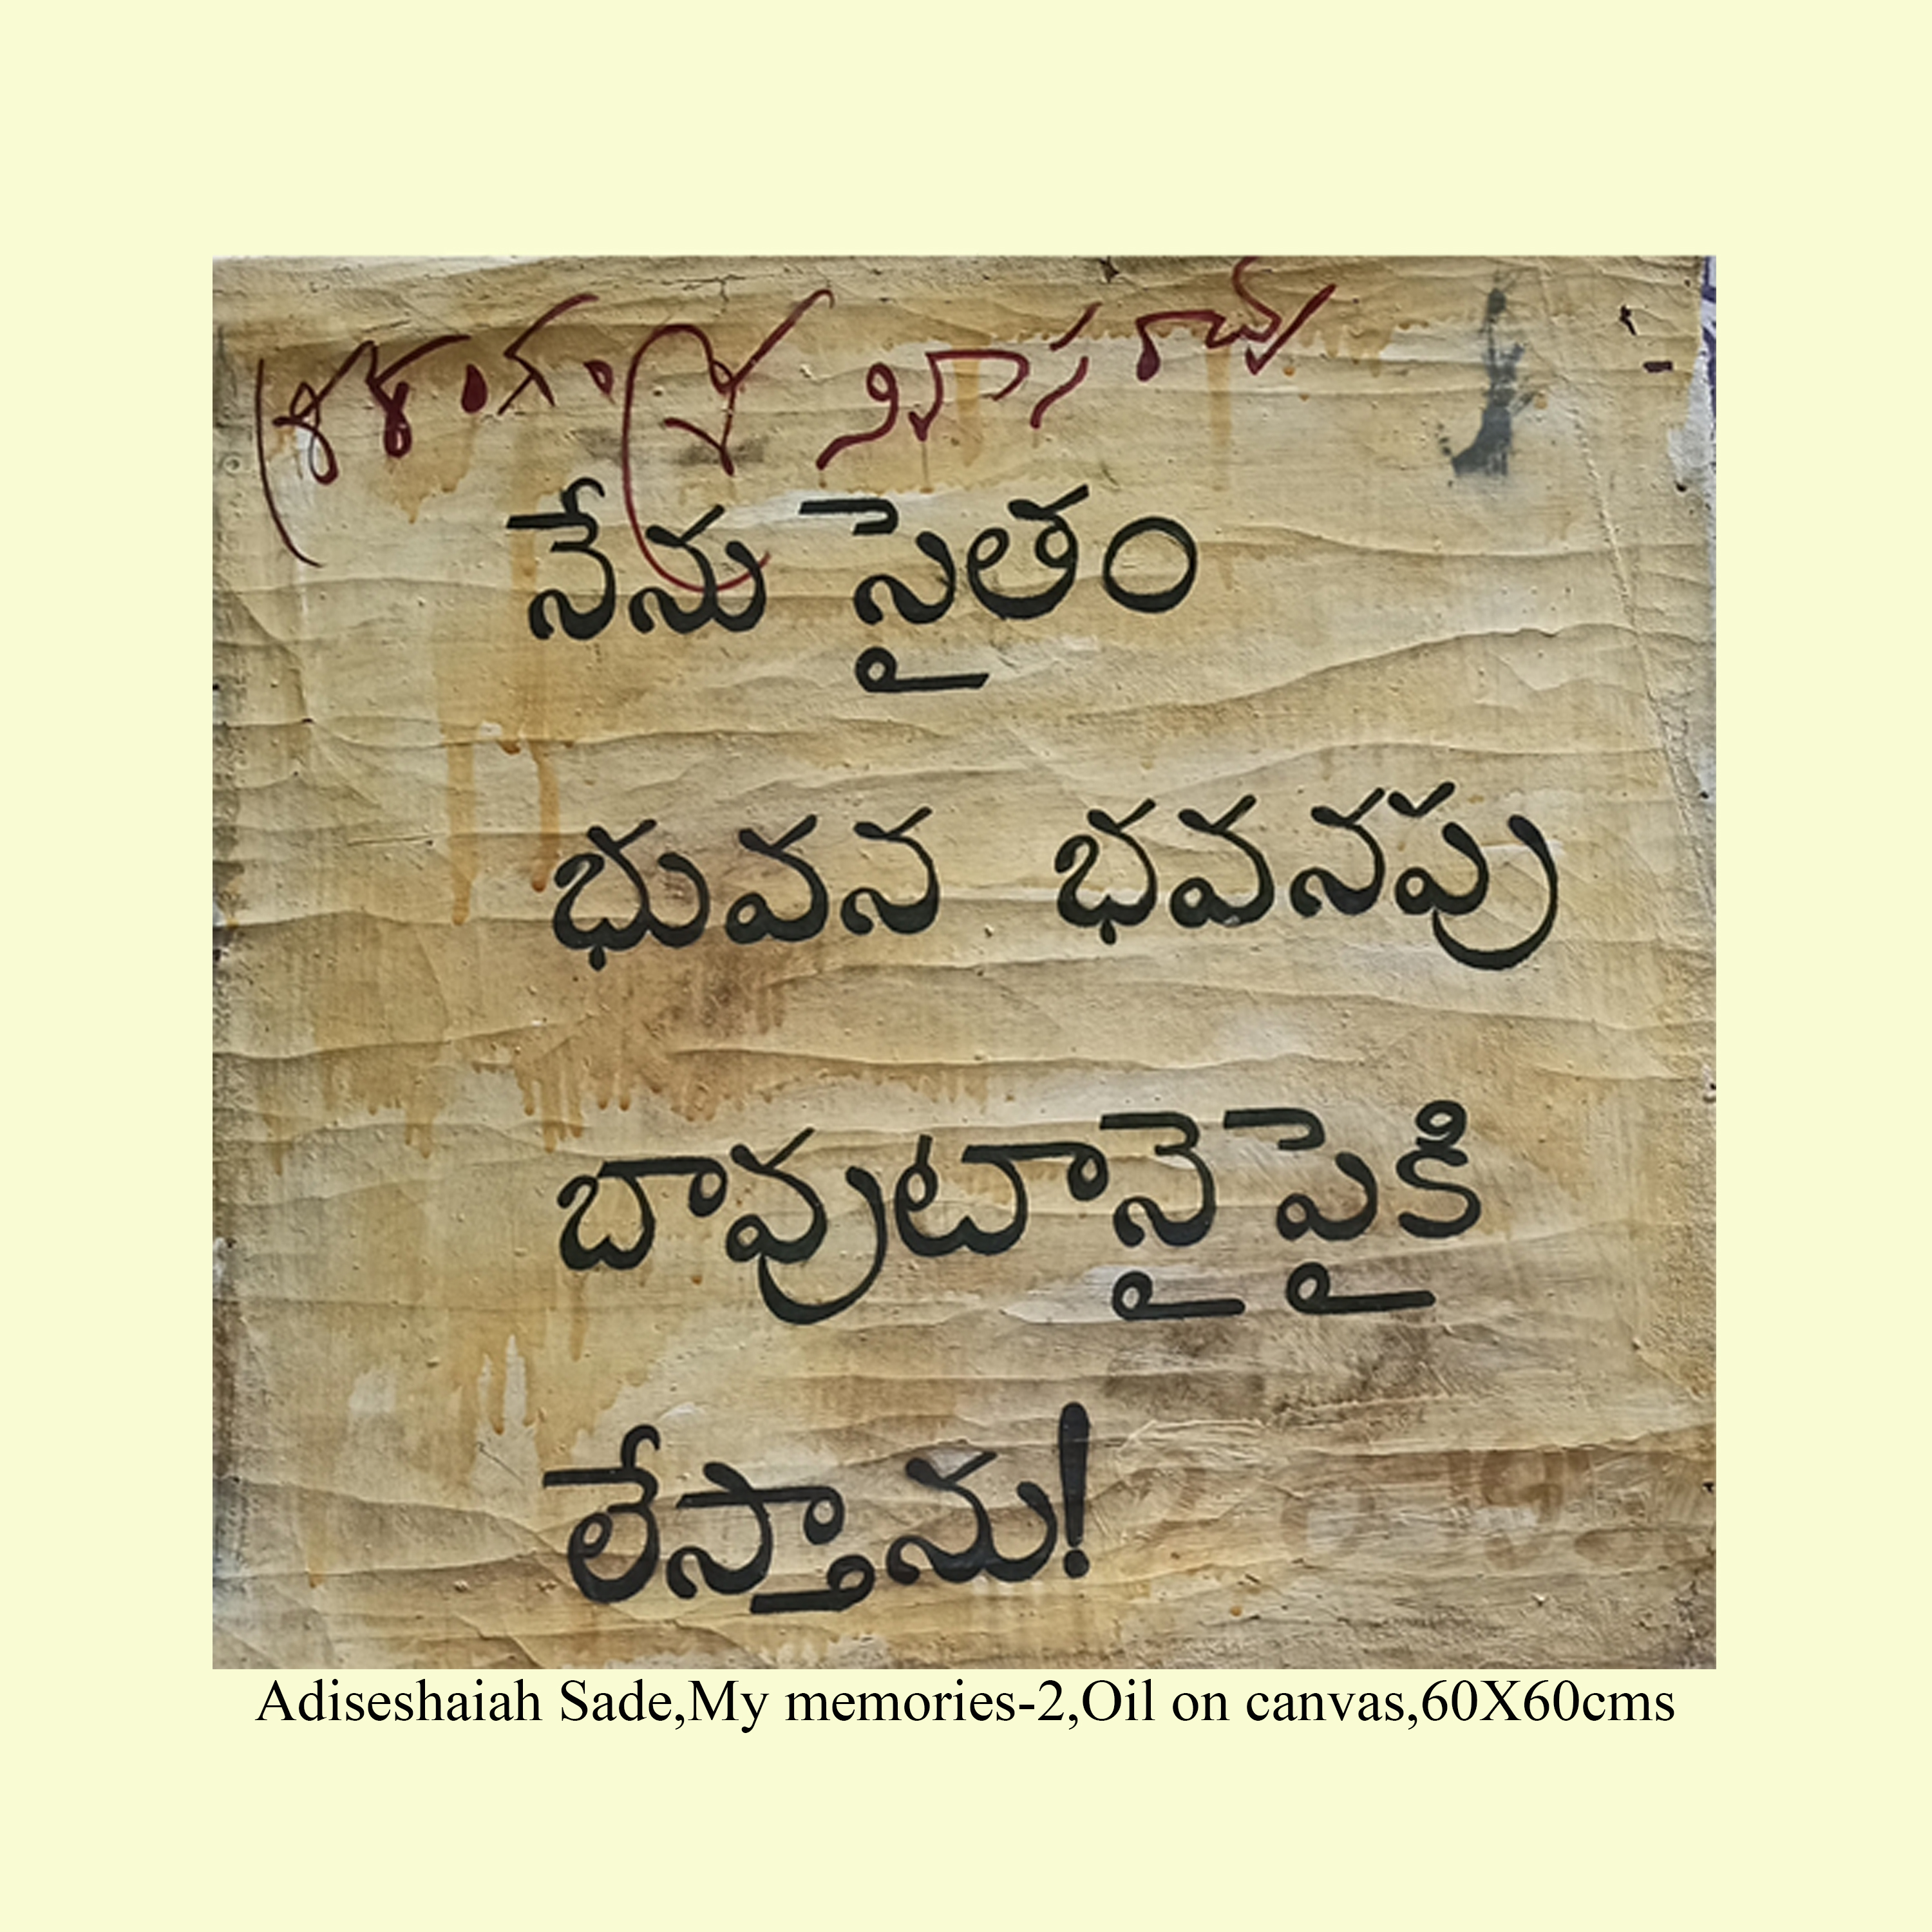 శ్రీరంగం శ్రీనివాస రావు
నేను సైతం
భువన భవనపు
బావుటానైపైకి
లేస్తాను!
Adiseshaiah Sade,My memories-2,Oil on canvas,60X60cms